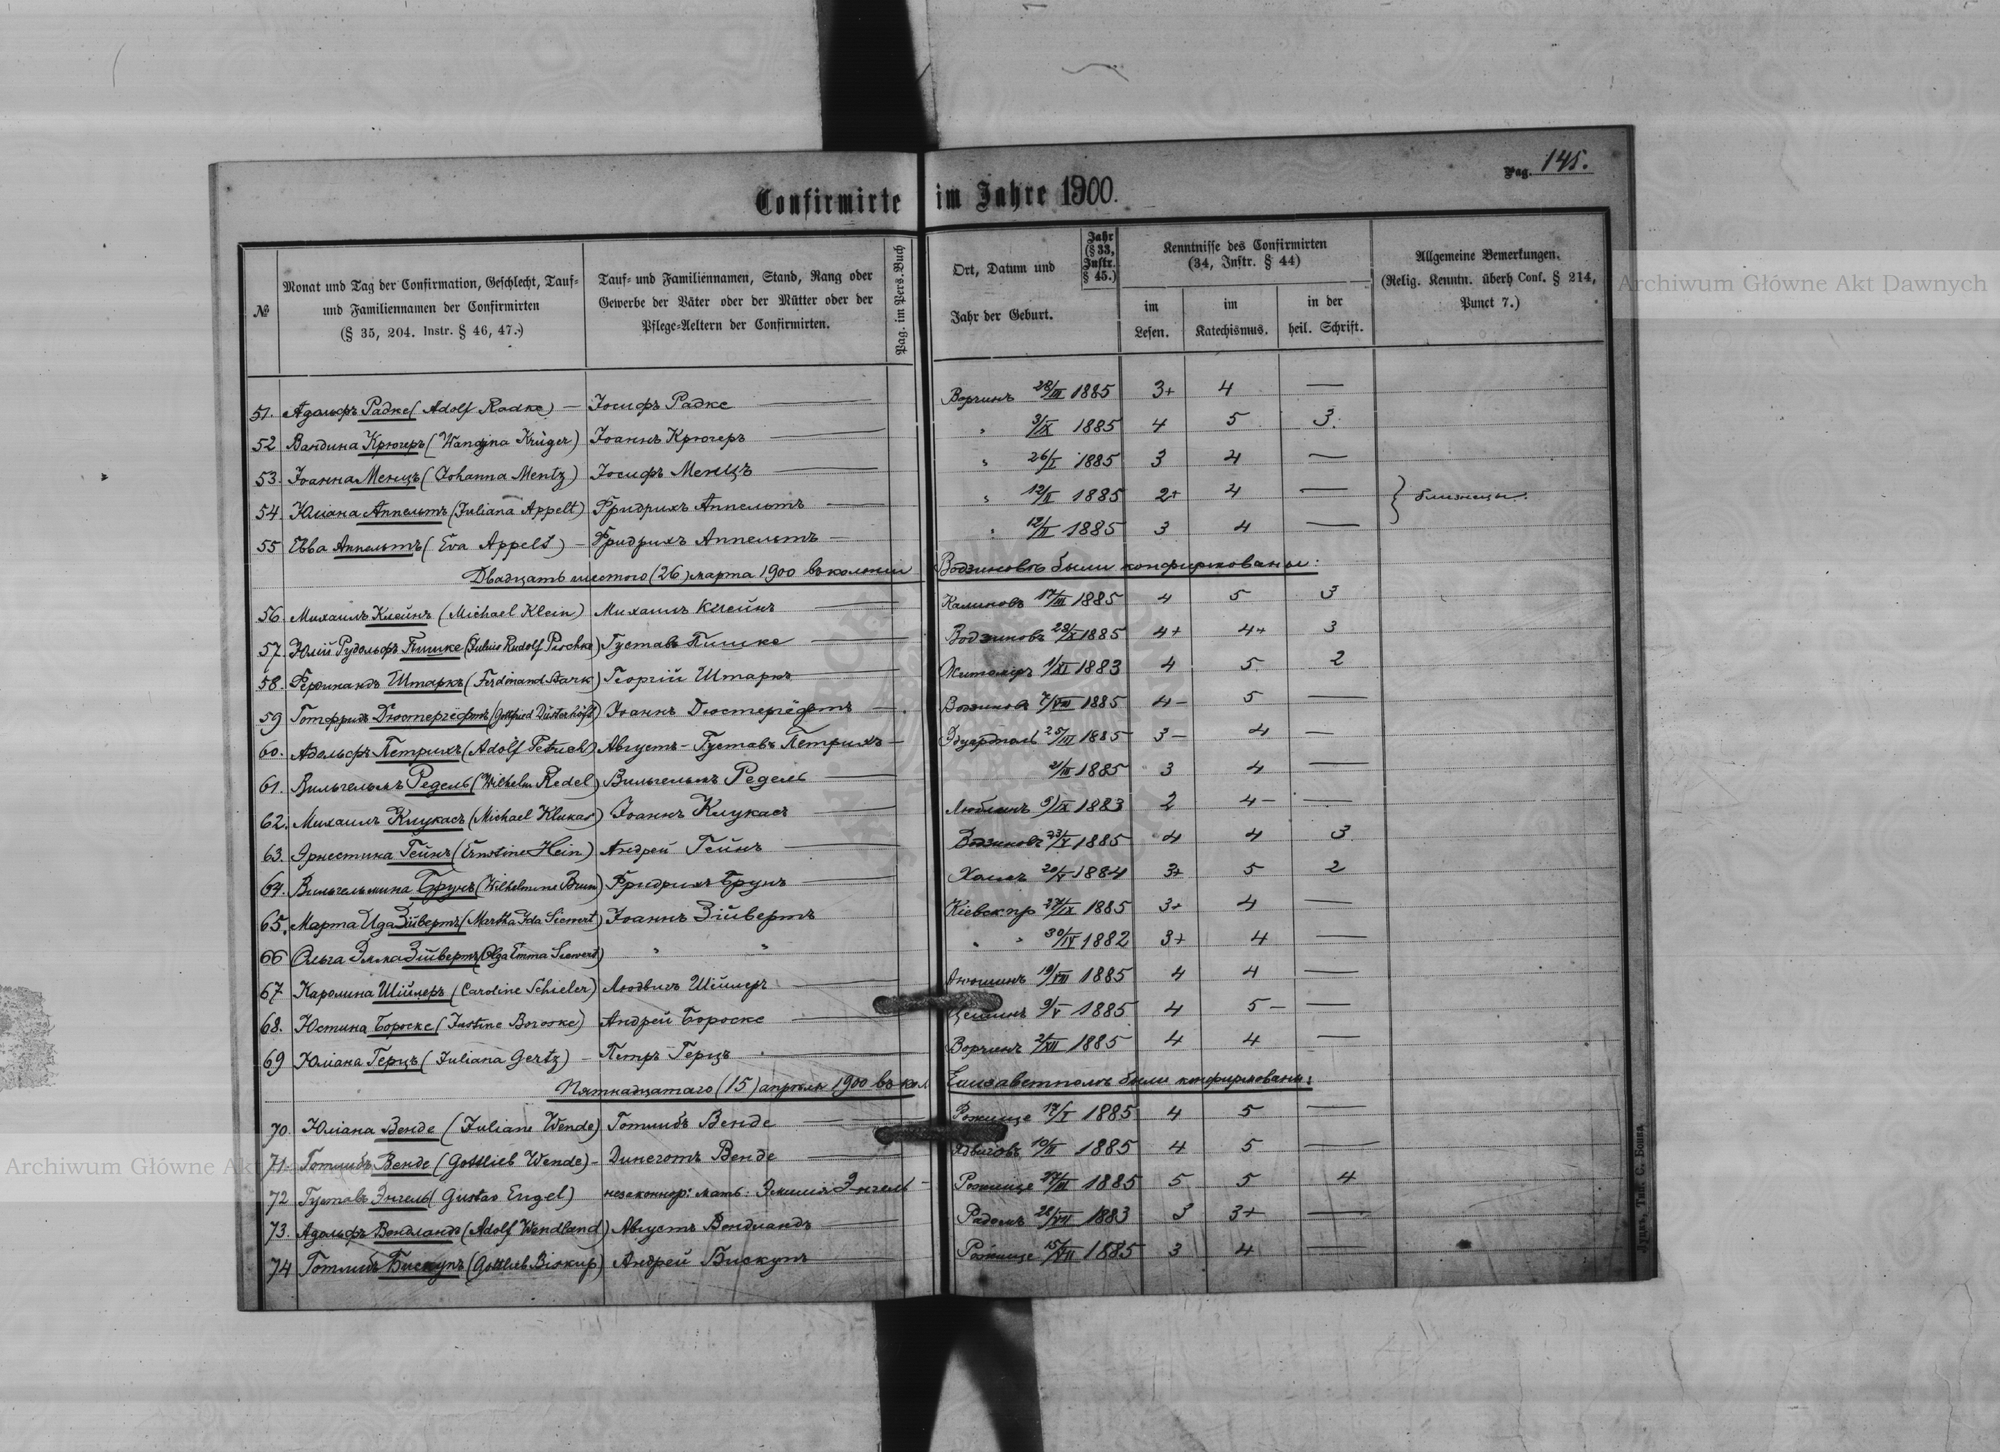 Pag. 145.
Confirmirte im Jahre 1900.
№
Monat und Tag der Confirmation, Geschlecht, Tauf-
und Familiennamen der Confirmirten
(§ 35, 204. Instr. § 46, 47.)
Tauf- und Familiennamen, Stand, Rang oder
Gewerbe der Väter oder der Mütter oder der
Pflege-Aeltern der Confirmirten.
Pag. im Pers. Buch
Ort, Datum und
Jahr der Geburt.
Jahr
(§ 33,
Instr.
§ 45.)
Kenntnisse des Confirmirten
(34, Instr. § 44)
im
Lesen.
im
Katechismus.
in der
heil. Schrift.
Allgemeine Bemerkungen.
(Relig. Kenntn. überh Conf. § 214,
Punct 7.)
51. Адольфъ Радке (Adolf Radke) — Іосифъ Радке — Ворчинъ 28/III 1885 3+ 4 —
52 Вандина Крюгеръ (Wandina Krüger) Іоаннъ Крюгеръ — " 3/IX 1885 4 5 3.
53. Іоанна Менцъ (Johanna Mentz) Іосифъ Менцъ — " 26/I 1885 3 4 —
54. Юліана Аппельтъ (Juliana Appelt) Фридрихъ Аппельтъ — " 12/II 1885 2+ 4 — } близнецы.
55 Евва Аппельтъ (Eva Appelt) — Фридрихъ Аппельтъ — " 12/II 1885 3 4 —
Двадцать шестого (26) марта 1900 въ колоніи Водзиновъ были конфирмованы:
56. Михаилъ Клейнъ (Michael Klein) Михаилъ Клейнъ — Калиновъ 17/III 1885 4 5 3
57. Юлій Рудольфъ Пишке (Julius Rudolf Pischke) Густавъ Пишке — Водзиновъ 28/X 1885 4+ 4+ 3
58. Фердинандъ Штаркъ (Ferdinand Stark) Георгій Штаркъ Житоміръ 1/XI 1883 4 5 2
59 Готфридъ Дюстергёфтъ (Gottfried Düsterhöft) Іоаннъ Дюстергёфтъ — Водзиновъ 7/VIII 1885 4- 5 —
60. Адольфъ Петрихъ (Adolf Petrich) Августъ-Густавъ Петрихъ — Эдуардполь 25/III 1885 3- 4 —
61. Вильгельмъ Редель (Wilhelm Redel) Вильгельмъ Редель — 2/III 1885 3 4 —
62. Михаилъ Клукасъ (Michael Klukas) Іоаннъ Клукасъ — Люблинъ 9/IX 1883 2 4- —
63. Эрнестина Гейнъ (Ernstine Hein) Андрей Гейнъ — Водзиновъ 23/X 1885 4 4 3
64. Вильгельмина Брунъ (Wilhelmine Brun) Фридрихъ Брунъ — 20/X 1884 3+ 5 2
65. Марта Ида Зійвертъ (Martha Ida Siewert) Іоаннъ Зійвертъ Кіевск. гр. 27/IX 1885 3+ 4 —
66 Ольга Эмма Зійвертъ (Olga Emma Siewert) " " " " 30/IV 1882 3+ 4 —
67 Каролина Шійлеръ (Caroline Schieler) Людвигъ Шійлеръ — 19/VIII 1885 4 4 —
68. Юстина Бороске (Justine Boroske) Андрей Бороске — 9/V 1885 4 5- —
69 Юліана Герцъ (Juliana Gertz) — Петръ Герцъ — Ворчинъ 2/XII 1885 4 4 —
Пятнадцатаго (15) апрѣля 1900 въ кол. Елизаветполь были конфирмованы:
70. Юліана Венде (Juliane Wende) Готлибъ Венде — Рожище 17/X 1885 4 5 —
71. Готлибъ Венде (Gottlieb Wende) — Динеготъ Венде — 10/II 1885 4 5 —
72 Густавъ Энгель (Gustav Engel) незаконнор: мать: Эмилія Энгель — Рожище 27/III 1885 5 5 4
73. Адольфъ Вендландъ (Adolf Wendland) Августъ Вендландъ — Радомъ 28/VII 1883 3 3+ —
74 Готлибъ Бискупъ (Gottlieb Biskup) Андрей Бискупъ — Рожище 15/VII 1885 3 4 —
Луцкъ, Тип. С. Бонка
Archiwum Główne Akt Dawnych
Archiwum Główne Akt